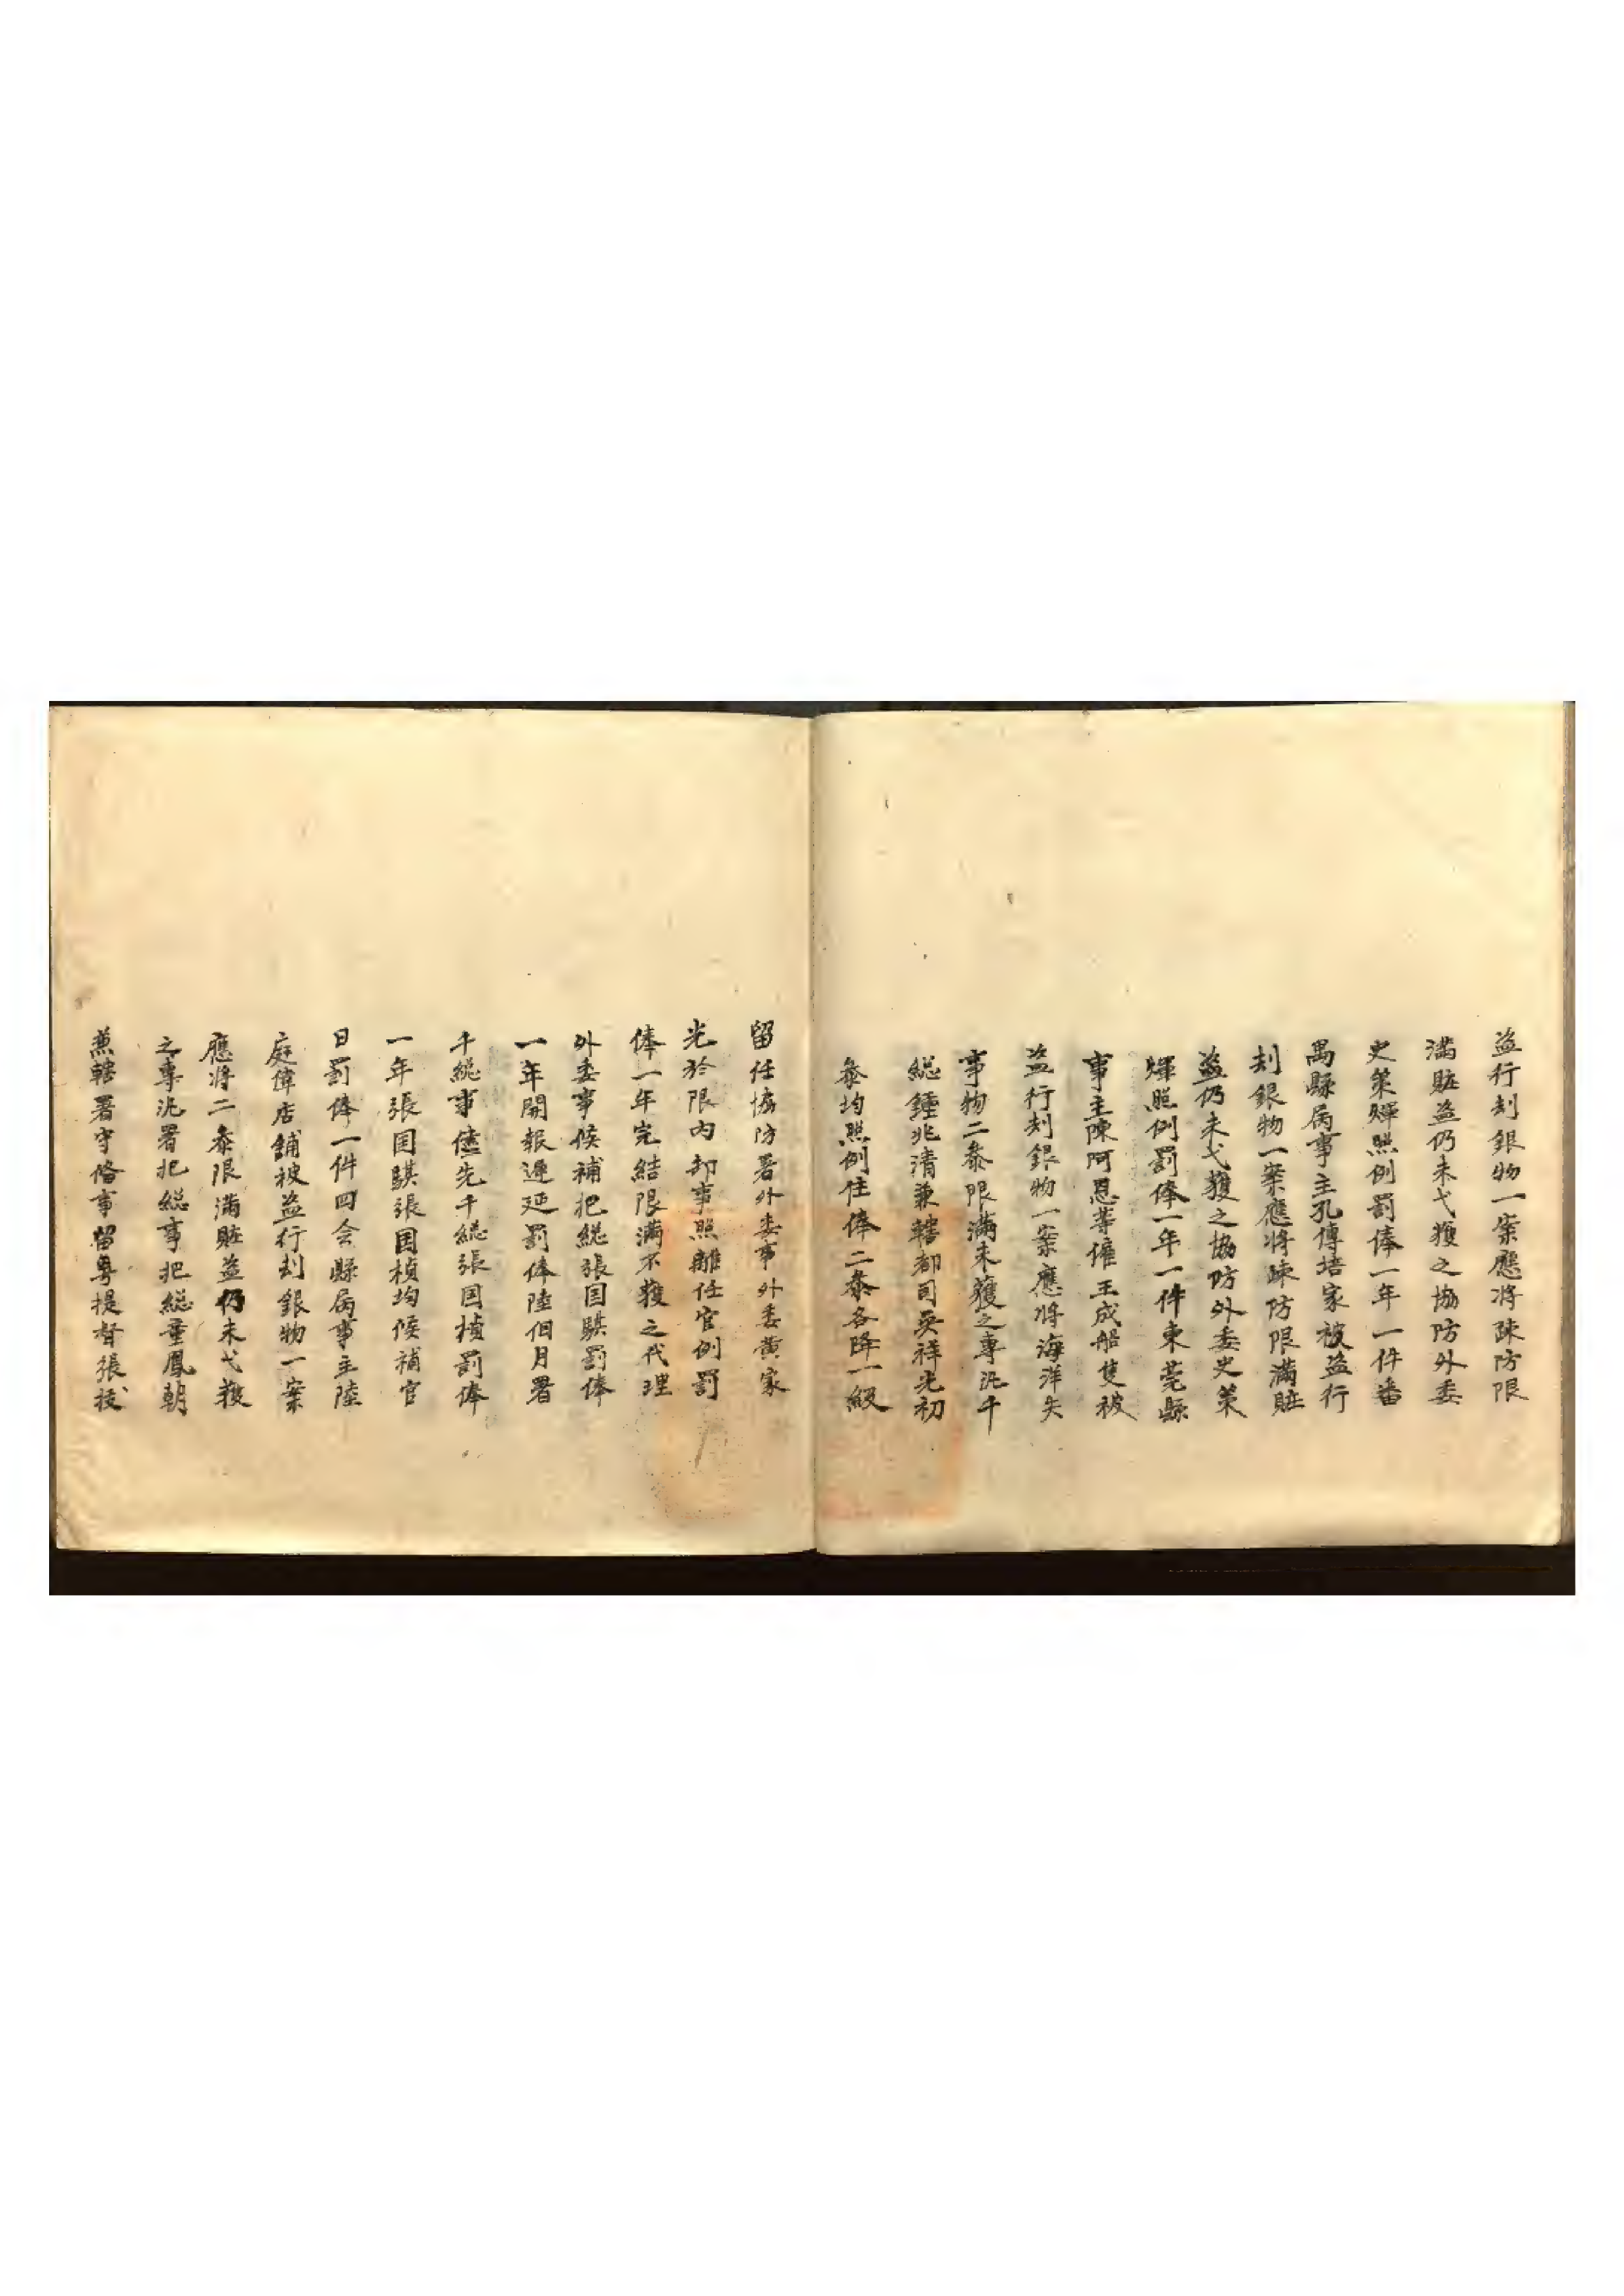 盗行刦銀物一案應將疎防限
滿賍盗仍未弋獲之協防外委
史策煇照例罰俸一年一件番
禺縣屬事主孔傳培家被盗行
刦銀物一案應將疎防限滿賍
盗仍未弋獲之協防外委史策
煇照例罰俸一年一件東莞縣
事主陳阿恩等僱王成船隻被
盗行刦銀物一案應將海洋失
事物二叅限滿未獲之專汛千
総鍾兆清兼轄都司吳祥光初
叅均照例住俸二叅各降一級
留任協防署外委事外委黄家
光於限內卸事照離任官例罰
俸一年完結限滿不獲之代理
外委事候補把総張国騏罰俸
一年開報遲延罰俸陸個月署
千総事儘先千総張国楨罰俸
一年張国騏張国楨均候補官
日罰俸一件四会縣屬事主陸
庭偉店鋪被盗行刦銀物一案
應將二叅限滿賍盗仍未弋獲
之專汛署把総事把総童鳳朝
兼轄署守俻事留粤提督張